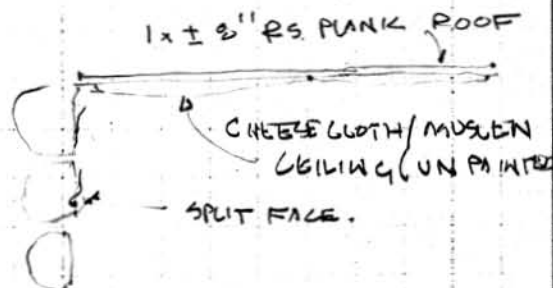 1x ± 8" RS. PLANK ROOF
CHEESECLOTH/MUSLEN
CEILING/UNPAINTED
SPLIT FACE.